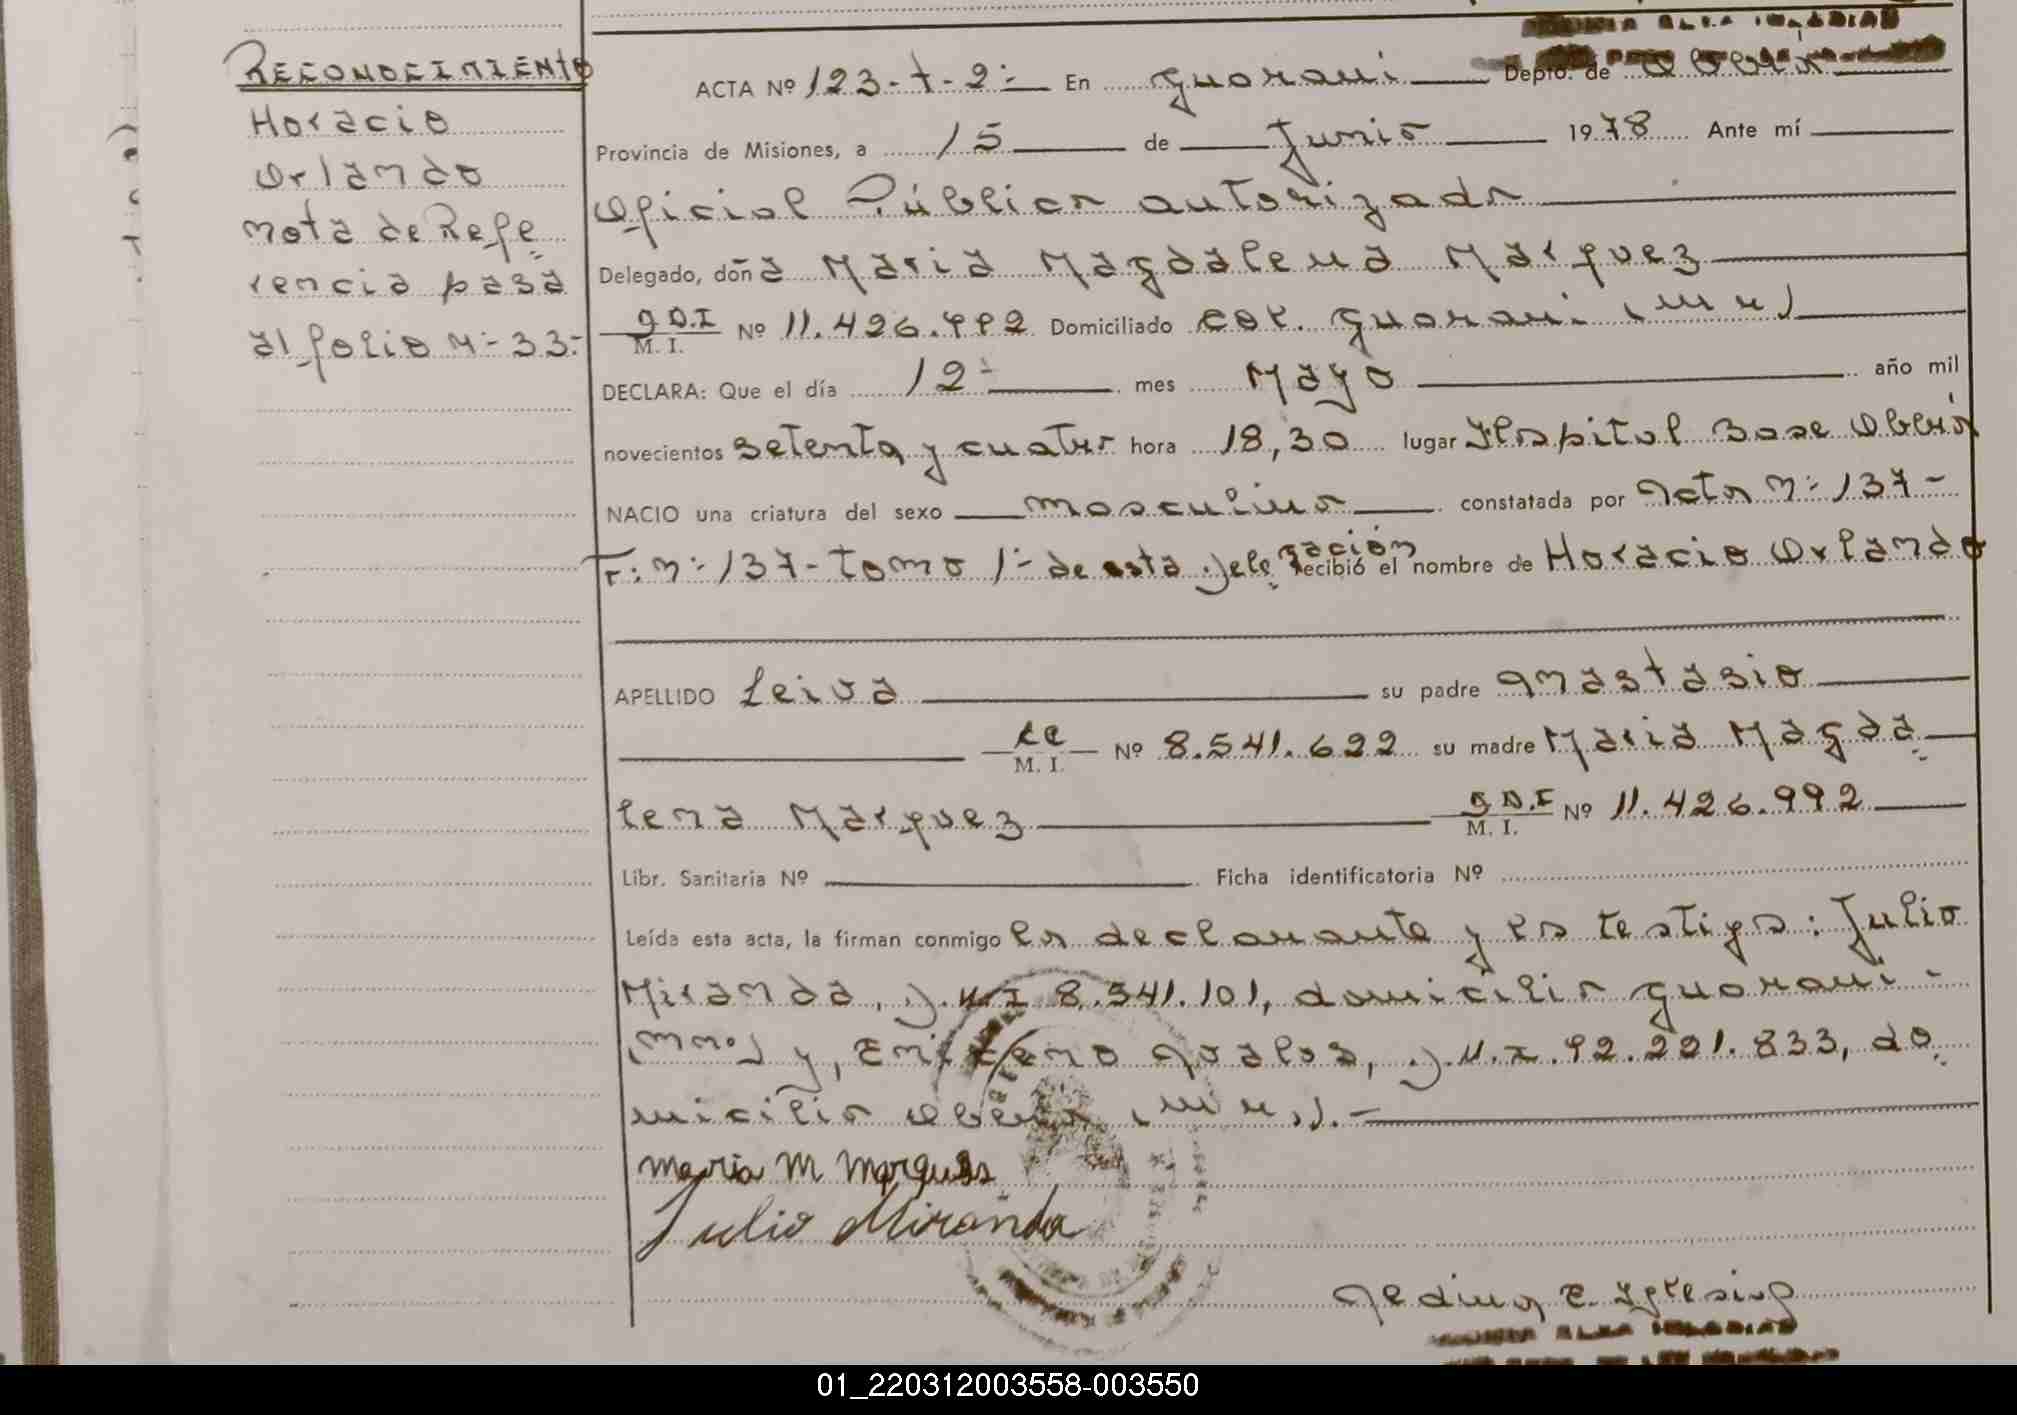 RECONOCIMIENTO
Horacio
Orlando
nota de Refe
rencia pasa
al folio N:- 33:-
ACTA Nº 123-t-2:- En Guarani Depto. de Oberá
Provincia de Misiones, a 15 de Junio 1978 Ante mí
Oficial Público autorizado
Delegado, doña Maria Magdalena Marquez
D.I M. I. Nº 11.426.992 Domiciliado Col. Guarani (Mnes)
DECLARA: Que el día 12:- mes Mayo año mil
novecientos setenta y cuatro hora 18,30 lugar Hospital Base Oberá
NACIO una criatura del sexo masculino constatada por Acta N:- 137-
F: N:- 137- Tomo 1:- de esta Dele gación recibió el nombre de Horacio Orlando
APELLIDO Leiva su padre Anastasio
M. I. Nº 8.541.622 su madre Maria Magda
lena Marquez D.I M. I. Nº 11.426.992
Libr. Sanitaria Nº Ficha identificatoria Nº
Leída esta acta, la firman conmigo la declarante y los testigos: Julio
Miranda, D.N.I 8.541.101, domicilio Guarani -
(Mnes) y, Avalos, D.N.I. 92.201.833, do
micilio Oberá (Mnes).-
Maria M Marques
Julio Miranda
E. Iglesias
01_220312003558-003550